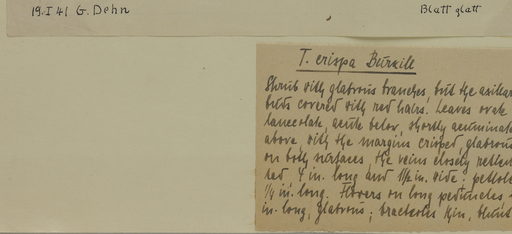 19.I 41 G. Dehn
Blatt glatt
T. crispa Burkill
Shrub with glabrous branches, but the axillar
buds covered with red hairs. Leaves ovate
lanceolate, acute below, shortly acuminate
above, with the margins crisped, glabrous
on both surfaces, the veins closely reticu
ted, 4 in. long and 1½ in. wide: petiole
¼ in. long. Flowers on long peduncles
in. long, glabrous; bracteoles in,